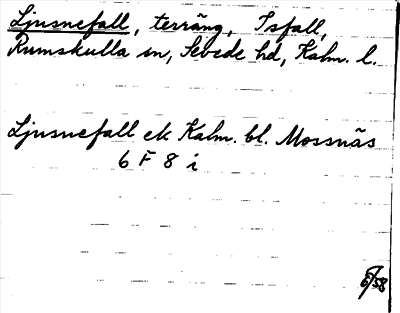 Ljusnefall, terräng, Isfall,
Rumskulla sn, Sevede hd, Kalm. l.
Ljusnefall ek Kalm. bl. Mossnäs
6 F 8 i
6/58